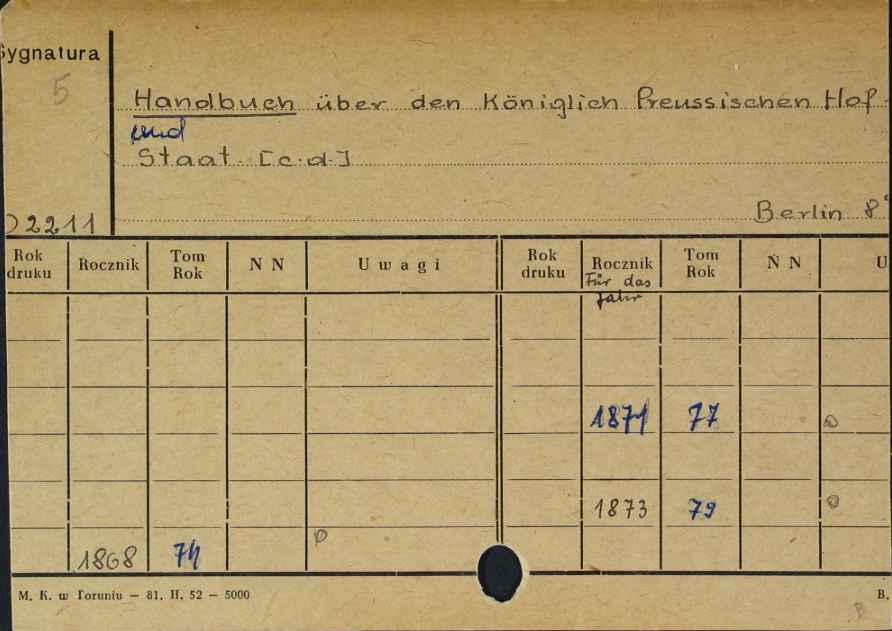 Sygnatura
5
Handbuch über den Königlich Preussischen Hof-
und
Staat. [c.d.]
2211
Berlin 8°
Rok druku Rocznik Tom Rok N N Uwagi Rok druku Rocznik Tom Rok N N U
Für das Jahr
1871 77
1873 79
1868 74
M. K. w Toruniu — 81. II. 52 — 5000 B.